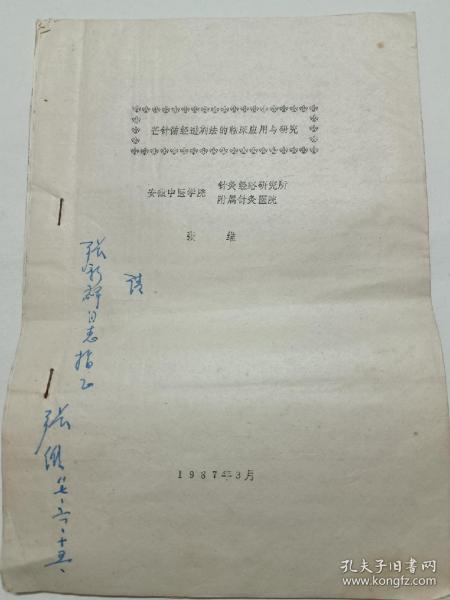 芒针循经透刺法的临床应用与研究
安徽中医学院
针灸经络研究所
附属针灸医院
张 维
请
张新群同志指正
张維 八七.六.十五.
1987年3月
孔夫子旧书网
www.kongfz.com